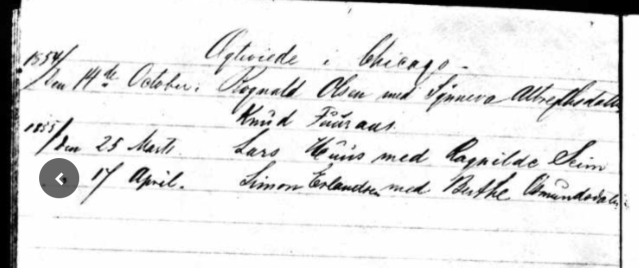 Ægteviede i Chicago.
1854/
den 14de October: Rognald Olsen med Synneva
Knud Fuuraas.
1855/
den 25 Marts. Lars Huus med Ragnilde Seim
17 April. Simon Erlandsen med Berthe Amundsdatter